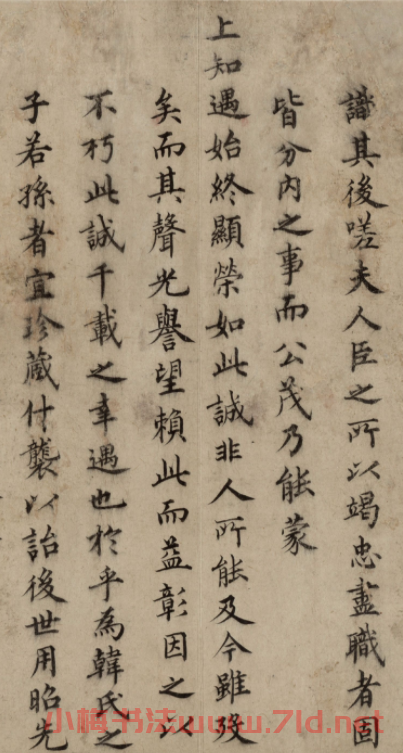 識其後嗟夫人臣之所以竭忠盡職者固
皆分内之事而公茂乃能蒙
上知遇始終顯榮如此誠非人所能及今雖歿
矣而其聲光譽望賴此而益彰因之以
不朽此誠千載之幸遇也於乎為韓氏之
子若孫者宜珍藏什襲以詒後世用昭先
小梅书法www.7ld.net